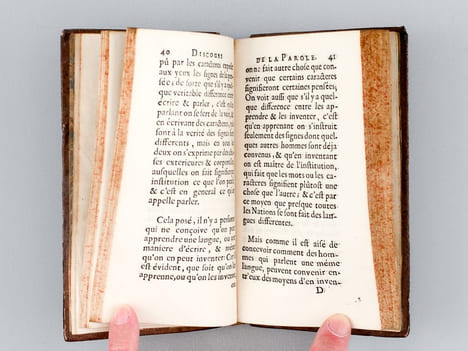 40 DISCOURS
pû par les caracteres
aux yeux les signes de la
sée; de sorte que s'il y a
que veritable difference
écrire & parler, c'est
parlant on se sert de la
en écrivant des caracteres,
sont à la verité des signes
differents, mais en tou
deux on s'exprime par des
ses exterieures & corpor
ausquelles on fait signi
institution ce que l'on
& c'est en general ce
appelle parler.
Cela posé, il n'y a person
qui ne conçoive qu'on
apprendre une langue, ou
maniere d'écrire, & mesme
qu'on en peut inventer: Car
est évident, que soit qu'on
apprenne, ou qu'on les
on
DE LA PAROLE. 41
on ne fait autre chose que con-
venir que certains caracteres
signifieront certaines pensées;
On voit aussi que s'il y a quel-
que difference entre les ap-
prendre & les inventer, c'est
qu'en apprenant on s'instruit
seulement des signes dont quel-
ques autres hommes sont déja
convenus; & qu'en inventant
on est maître de l'institution,
qui fait que les mots ou les ca-
racteres signifient plûtost une
chose que l'autre; & c'est par
ce moyen que presque toutes
les Nations se sont fait des lan-
gues differentes.
Mais comme il est aisé de
concevoir comment des hom-
mes qui parlent une même
langue, peuvent convenir en-
tr'eux des moyens d'en inven-
D